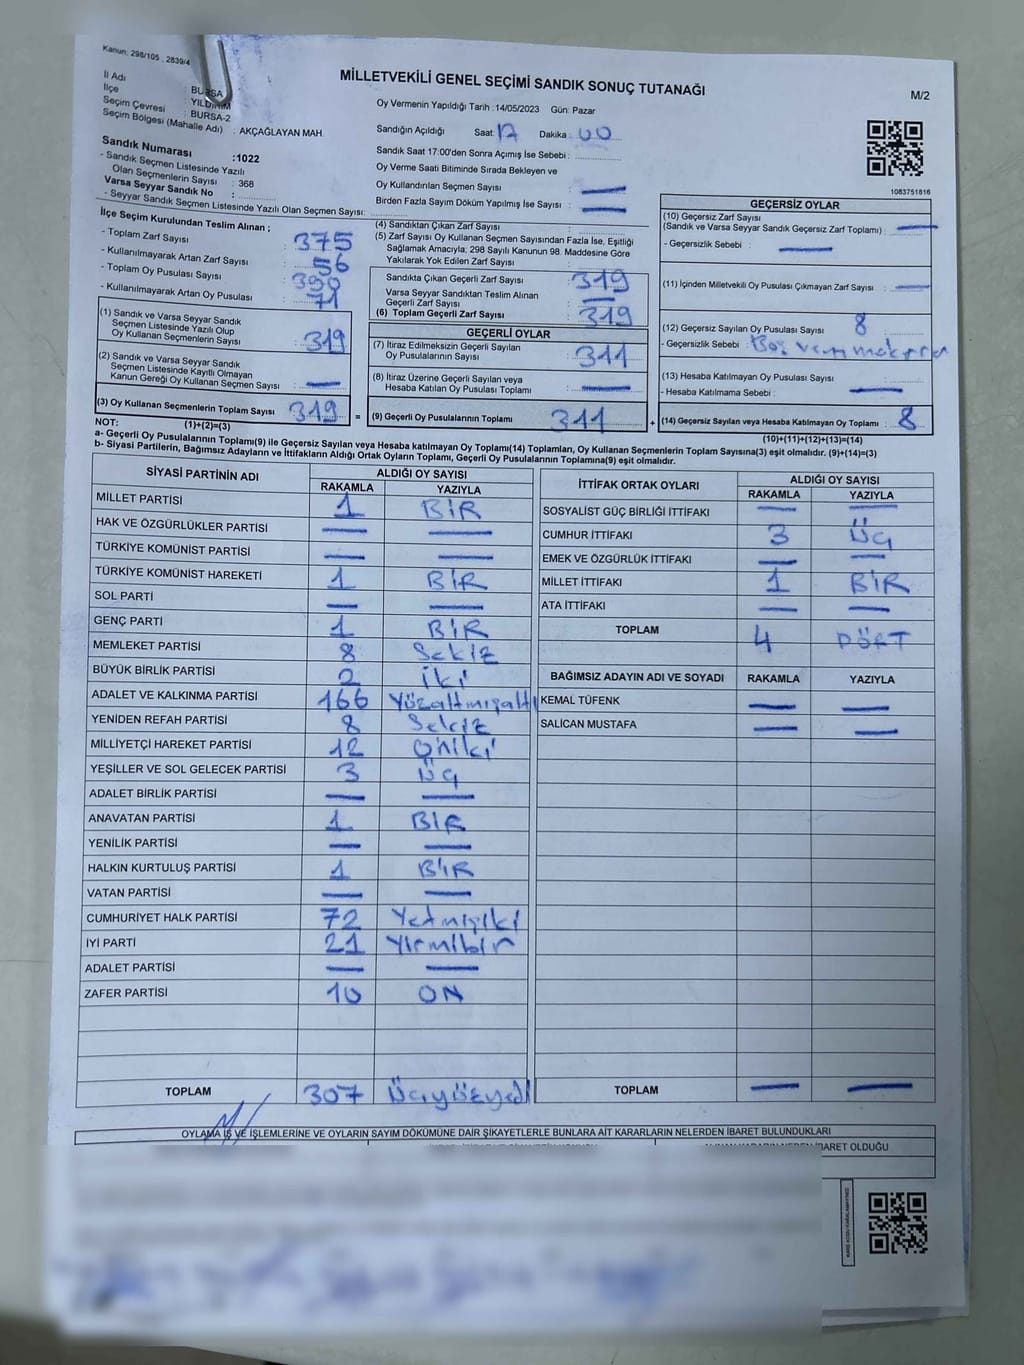 Kanun: 298/105 , 2839/4
MİLLETVEKİLİ GENEL SEÇİMİ SANDIK SONUÇ TUTANAĞI
M/2
İl Adı : BURSA
İlçe : YILDIRIM
Seçim Çevresi : BURSA-2
Seçim Bölgesi (Mahalle Adı) : AKÇAĞLAYAN MAH.
Sandık Numarası :1022
- Sandık Seçmen Listesinde Yazılı
Olan Seçmenlerin Sayısı : 368
Varsa Seyyar Sandık No :
- Seyyar Sandık Seçmen Listesinde Yazılı Olan Seçmen Sayısı:
Oy Vermenin Yapıldığı Tarih :14/05/2023 Gün: Pazar
Sandığın Açıldığı Saat: 17 Dakika : 00
Sandık Saat 17:00'den Sonra Açımış İse Sebebi :
Oy Verme Saati Bitiminde Sırada Bekleyen ve
Oy Kullandırılan Seçmen Sayısı : —
Birden Fazla Sayım Döküm Yapılmış İse Sayısı : —
1083751816
İlçe Seçim Kurulundan Teslim Alınan ;
- Toplam Zarf Sayısı : 375
- Kullanılmayarak Artan Zarf Sayısı : 56
- Toplam Oy Pusulası Sayısı :
- Kullanılmayarak Artan Oy Pusulası : 71
(1) Sandık ve Varsa Seyyar Sandık
Seçmen Listesinde Yazılı Olup
Oy Kullanan Seçmenlerin Sayısı : 319
(2) Sandık ve Varsa Seyyar Sandık
Seçmen Listesinde Kayıtlı Olmayan
Kanun Gereği Oy Kullanan Seçmen Sayısı : —
(3) Oy Kullanan Seçmenlerin Toplam Sayısı 319
(4) Sandıktan Çıkan Zarf Sayısı :
(5) Zarf Sayısı Oy Kullanan Seçmen Sayısından Fazla İse, Eşitliği
Sağlamak Amacıyla; 298 Sayılı Kanunun 98. Maddesine Göre
Yakılarak Yok Edilen Zarf Sayısı :
Sandıkta Çıkan Geçerli Zarf Sayısı : 319
Varsa Seyyar Sandıktan Teslim Alınan
Geçerli Zarf Sayısı : —
(6) Toplam Geçerli Zarf Sayısı : 319
GEÇERLİ OYLAR
(7) İtiraz Edilmeksizin Geçerli Sayılan
Oy Pusulalarının Sayısı : 311
(8) İtiraz Üzerine Geçerli Sayılan veya
Hesaba Katılan Oy Pusulası Toplamı : —
= (9) Geçerli Oy Pusulalarının Toplamı 311
GEÇERSİZ OYLAR
(10) Geçersiz Zarf Sayısı
(Sandık ve Varsa Seyyar Sandık Geçersiz Zarf Toplamı) : —
- Geçersizlik Sebebi : —
(11) İçinden Milletvekili Oy Pusulası Çıkmayan Zarf Sayısı : —
(12) Geçersiz Sayılan Oy Pusulası Sayısı : 8
- Geçersizlik Sebebi :
(13) Hesaba Katılmayan Oy Pusulası Sayısı :
- Hesaba Katılmama Sebebi : —
+ (14) Geçersiz Sayılan veya Hesaba Katılmayan Oy Toplamı : 8
NOT: (1)+(2)=(3)
(10)+(11)+(12)+(13)=(14)
a- Geçerli Oy Pusulalarının Toplamı(9) ile Geçersiz Sayılan veya Hesaba katılmayan Oy Toplamı(14) Toplamları, Oy Kullanan Seçmenlerin Toplam Sayısına(3) eşit olmalıdır. (9)+(14)=(3)
b- Siyasi Partilerin, Bağımsız Adayların ve İttifakların Aldığı Ortak Oyların Toplamı, Geçerli Oy Pusulalarının Toplamına(9) eşit olmalıdır.
SİYASİ PARTİNİN ADI ALDIĞI OY SAYISI
RAKAMLA YAZIYLA
MİLLET PARTİSİ 1 BİR
HAK VE ÖZGÜRLÜKLER PARTİSİ — —
TÜRKİYE KOMÜNİST PARTİSİ — —
TÜRKİYE KOMÜNİST HAREKETİ 1 BİR
SOL PARTİ — —
GENÇ PARTİ 1 BİR
MEMLEKET PARTİSİ 8 Sekiz
BÜYÜK BİRLİK PARTİSİ 2 İki
ADALET VE KALKINMA PARTİSİ 166 Yüzaltmışaltı
YENİDEN REFAH PARTİSİ 8 Sekiz
MİLLİYETÇİ HAREKET PARTİSİ 12 Oniki
YEŞİLLER VE SOL GELECEK PARTİSİ 3 Üç
ADALET BİRLİK PARTİSİ — —
ANAVATAN PARTİSİ 1 BİR
YENİLİK PARTİSİ — —
HALKIN KURTULUŞ PARTİSİ 1 BİR
VATAN PARTİSİ — —
CUMHURİYET HALK PARTİSİ 72 Yetmişiki
İYİ PARTİ 21 Yirmibir
ADALET PARTİSİ — —
ZAFER PARTİSİ 10 ON
TOPLAM 307 Üçyüzyedi
İTTİFAK ORTAK OYLARI ALDIĞI OY SAYISI
RAKAMLA YAZIYLA
SOSYALİST GÜÇ BİRLİĞİ İTTİFAKI — —
CUMHUR İTTİFAKI 3 Üç
EMEK VE ÖZGÜRLÜK İTTİFAKI — —
MİLLET İTTİFAKI 1 BİR
ATA İTTİFAKI — —
TOPLAM 4 DÖRT
BAĞIMSIZ ADAYIN ADI VE SOYADI RAKAMLA YAZIYLA
KEMAL TÜFENK — —
SALİCAN MUSTAFA — —
TOPLAM — —
OYLAMA İŞ VE İŞLEMLERİNE VE OYLARIN SAYIM DÖKÜMÜNE DAİR ŞİKAYETLERLE BUNLARA AİT KARARLARIN NELERDEN İBARET BULUNDUKLARI
İBARET OLDUĞU